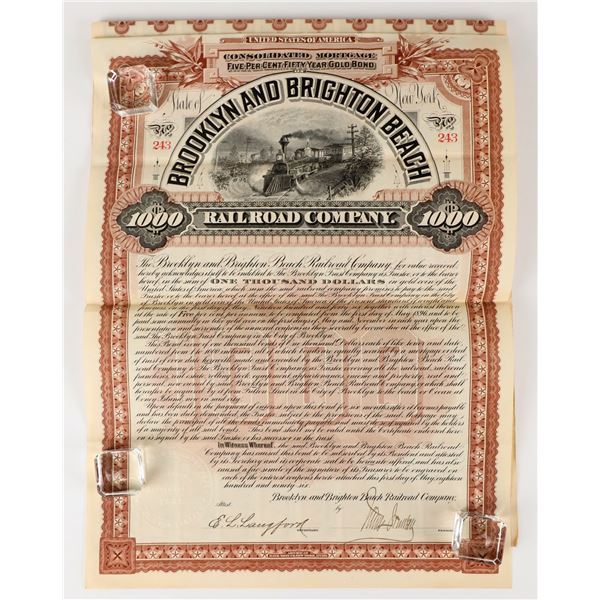 UNITED STATES OF AMERICA
CONSOLIDATED MORTGAGE
FIVE PER CENT FIFTY YEAR GOLD BOND
State of New York
No No
243 243
BROOKLYN AND BRIGHTON BEACH
1000 RAILROAD COMPANY. 1000
The Brooklyn and Brighton Beach Railroad Company for value received
hereby acknowledges itself to be indebted to the Brooklyn Trust Company as Trustee or to the bearer
hereof, in the sum of ONE THOUSAND DOLLARS in gold coin of the
United States of America, which sum the said railroad company promises to pay to the said
Trustee or to the bearer hereof at the office of the said The Brooklyn Trust Company in the City
at the rate of Five per cent per annum, to be computed from the first day of May 1896, and to be
presentation and surrender of the annexed coupons as they severally become due at the office of the
said The Brooklyn Trust Company in the City of Brooklyn.
This Bond is one of one thousand bonds of One thousand Dollars each of like tenor and date
numbered from 1 to 1000 inclusive, all of which bonds are equally secured by a mortgage or deed
of trust of even date herewith made and executed by the Brooklyn and Brighton Beach Rail
road Company to The Brooklyn Trust Company as Trustee covering all the railroad, railroad
Coney Island, now in said city.
Upon default in the payment of interest upon this bond for six months after it becomes payable
and has been duly demanded, the Trustee subject to the provisions of the said Mortgage may
declare the principal of all the bonds immediately payable and must do so if requested by the holders
of a majority of all said bonds. This bond shall not be valid until the Certificate endorsed here
on is signed by the said Trustee or his successor in the trust
In Witness Whereof, the said Brooklyn and Brighton Beach Railroad
Company has caused this bond to be subscribed by its President and attested
by its Secretary and its corporate seal to be hereunto affixed, and has also
caused a fac simile of the signature of its Treasurer to be engraved on
each of the interest coupons hereto attached this first day of May, eighteen
hundred and ninety six.
Brooklyn and Brighton Beach Railroad Company.
Attest. by
E. L. Langford